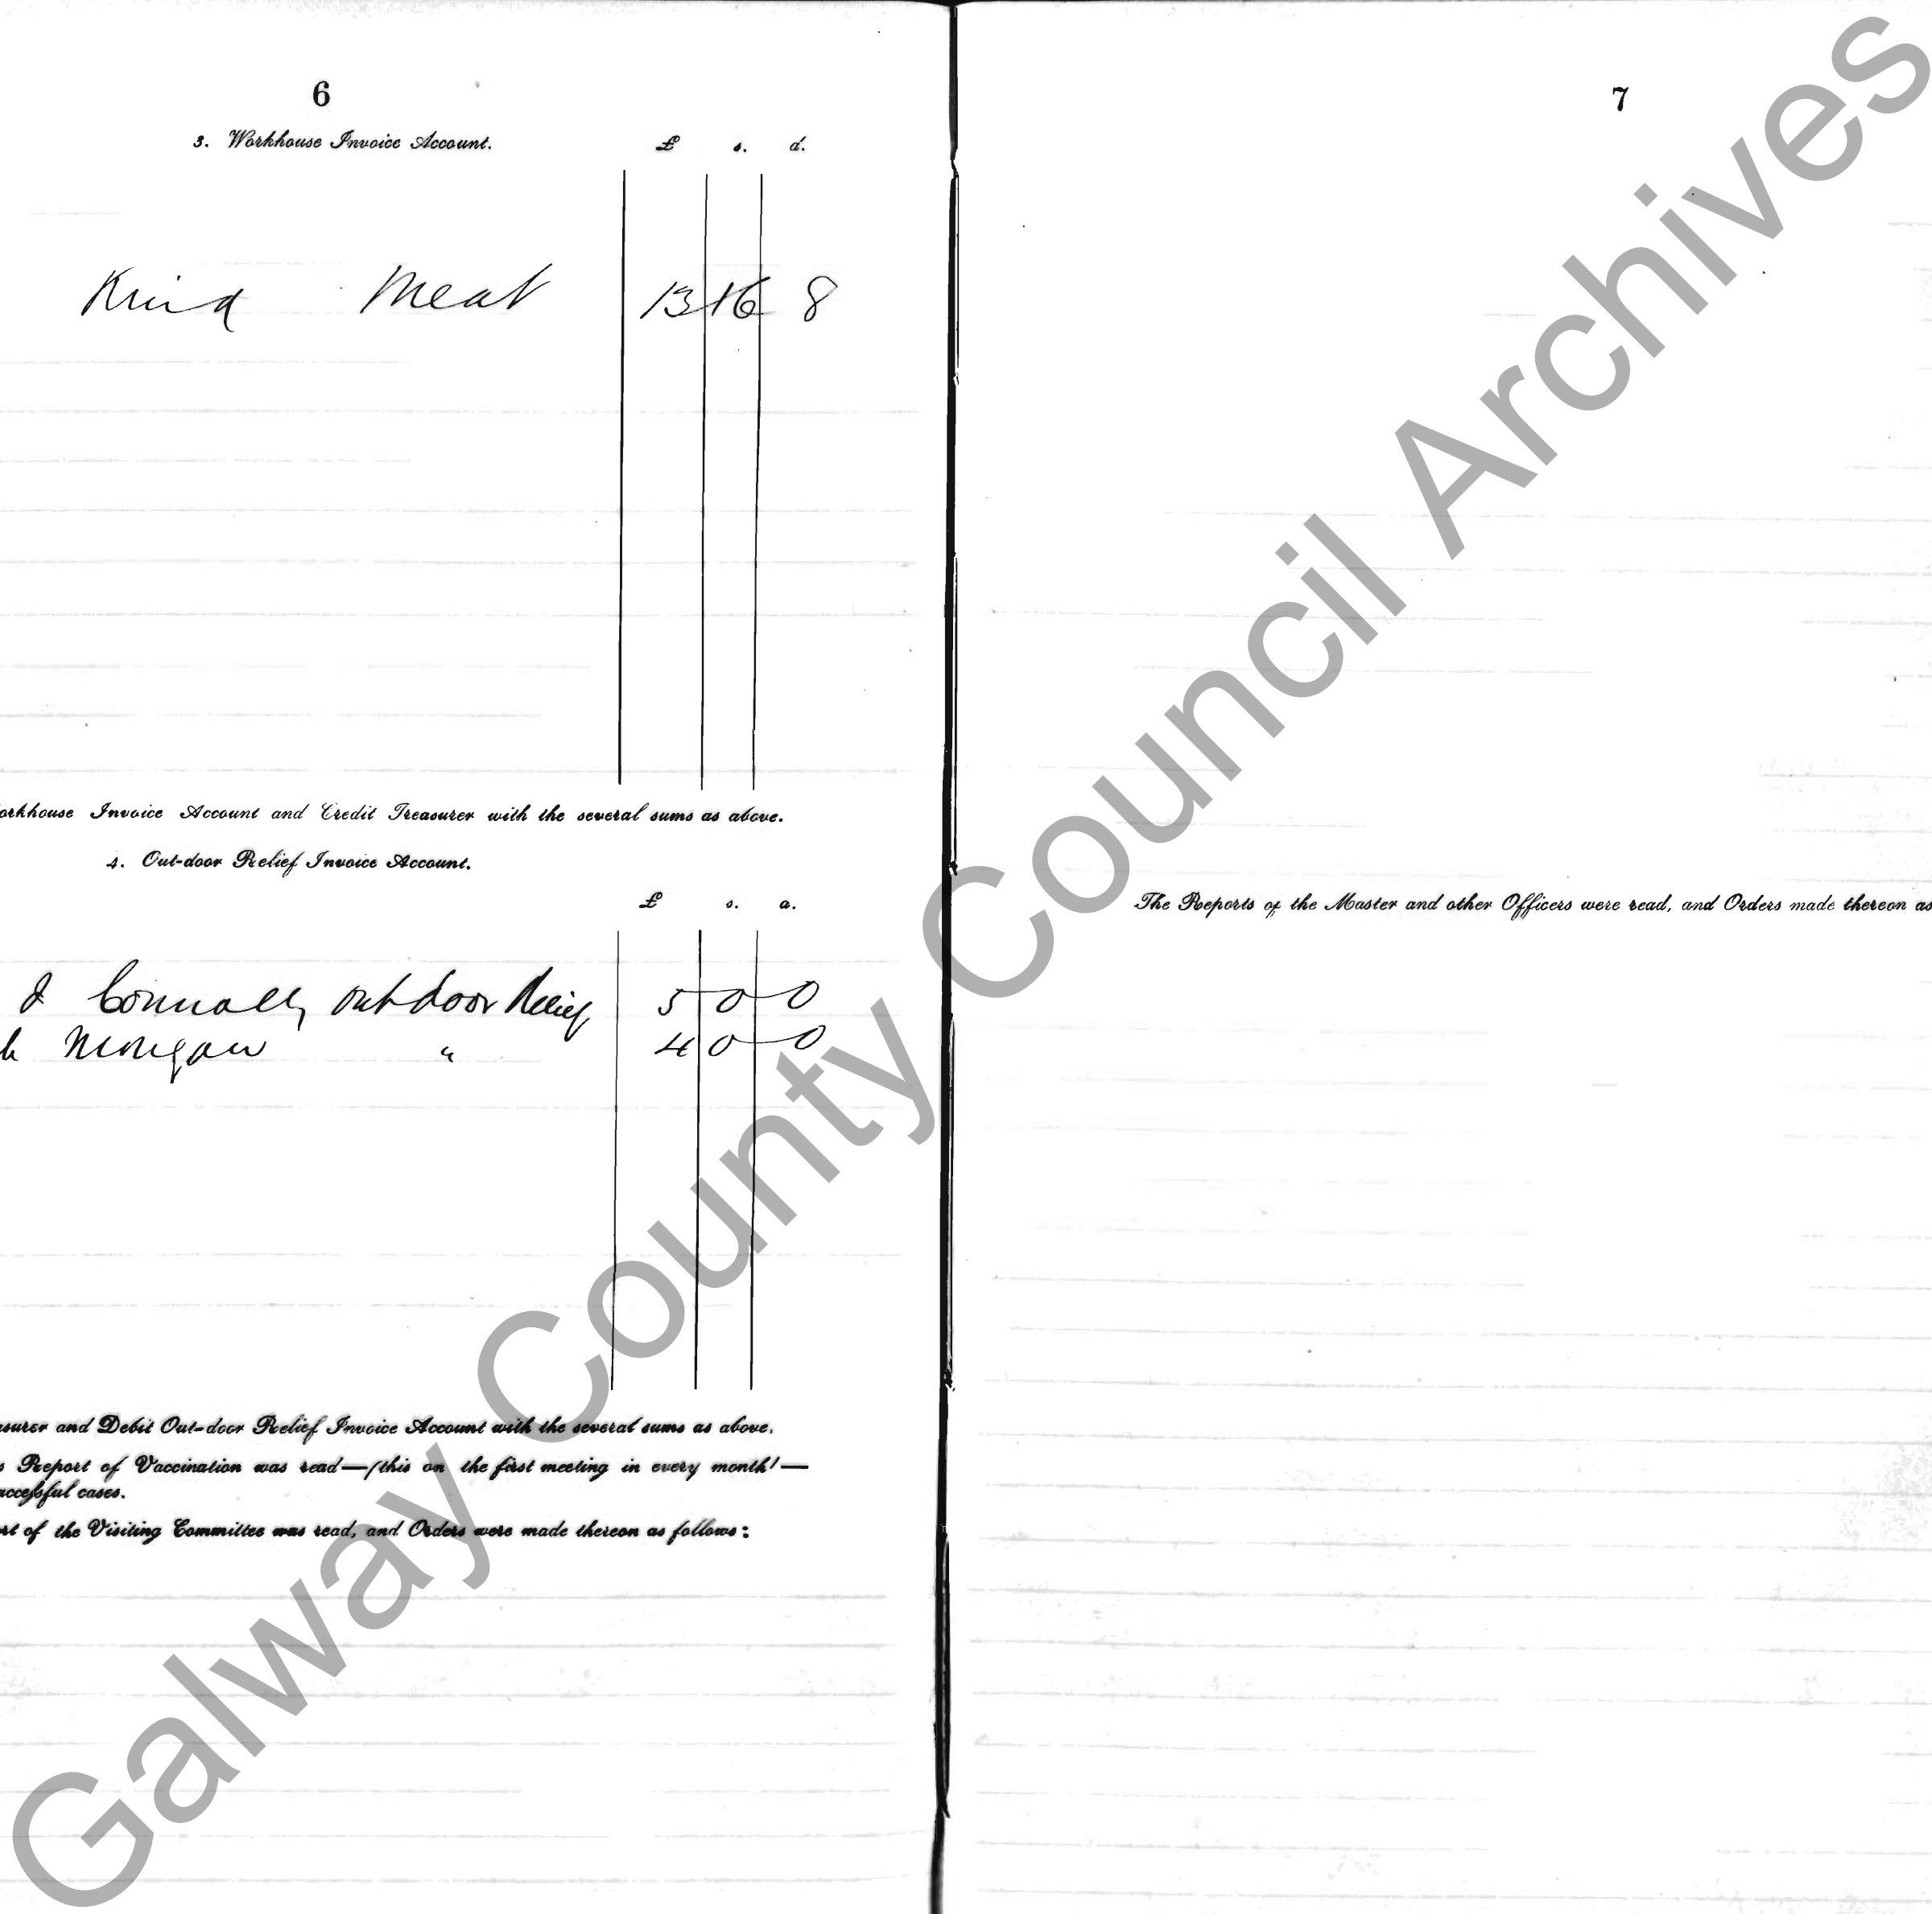 6
3. Workhouse Invoice Account. £ s. d.
Meat 13 16 8
orkhouse Invoice Account and Credit Treasurer with the several sums as above.
4. Out-door Relief Invoice Account.
£ s. d.
Connolly outdoor Relief 5 0 0
" 4 0 0
asurer and Debit Out-door Relief Invoice Account with the several sums as above.
s Report of Vaccination was read—(this on the first meeting in every month)—
uccessful cases.
rt of the Visiting Committee was read, and Orders were made thereon as follows:
7
The Reports of the Master and other Officers were read, and Orders made thereon as
Galway County Council Archives